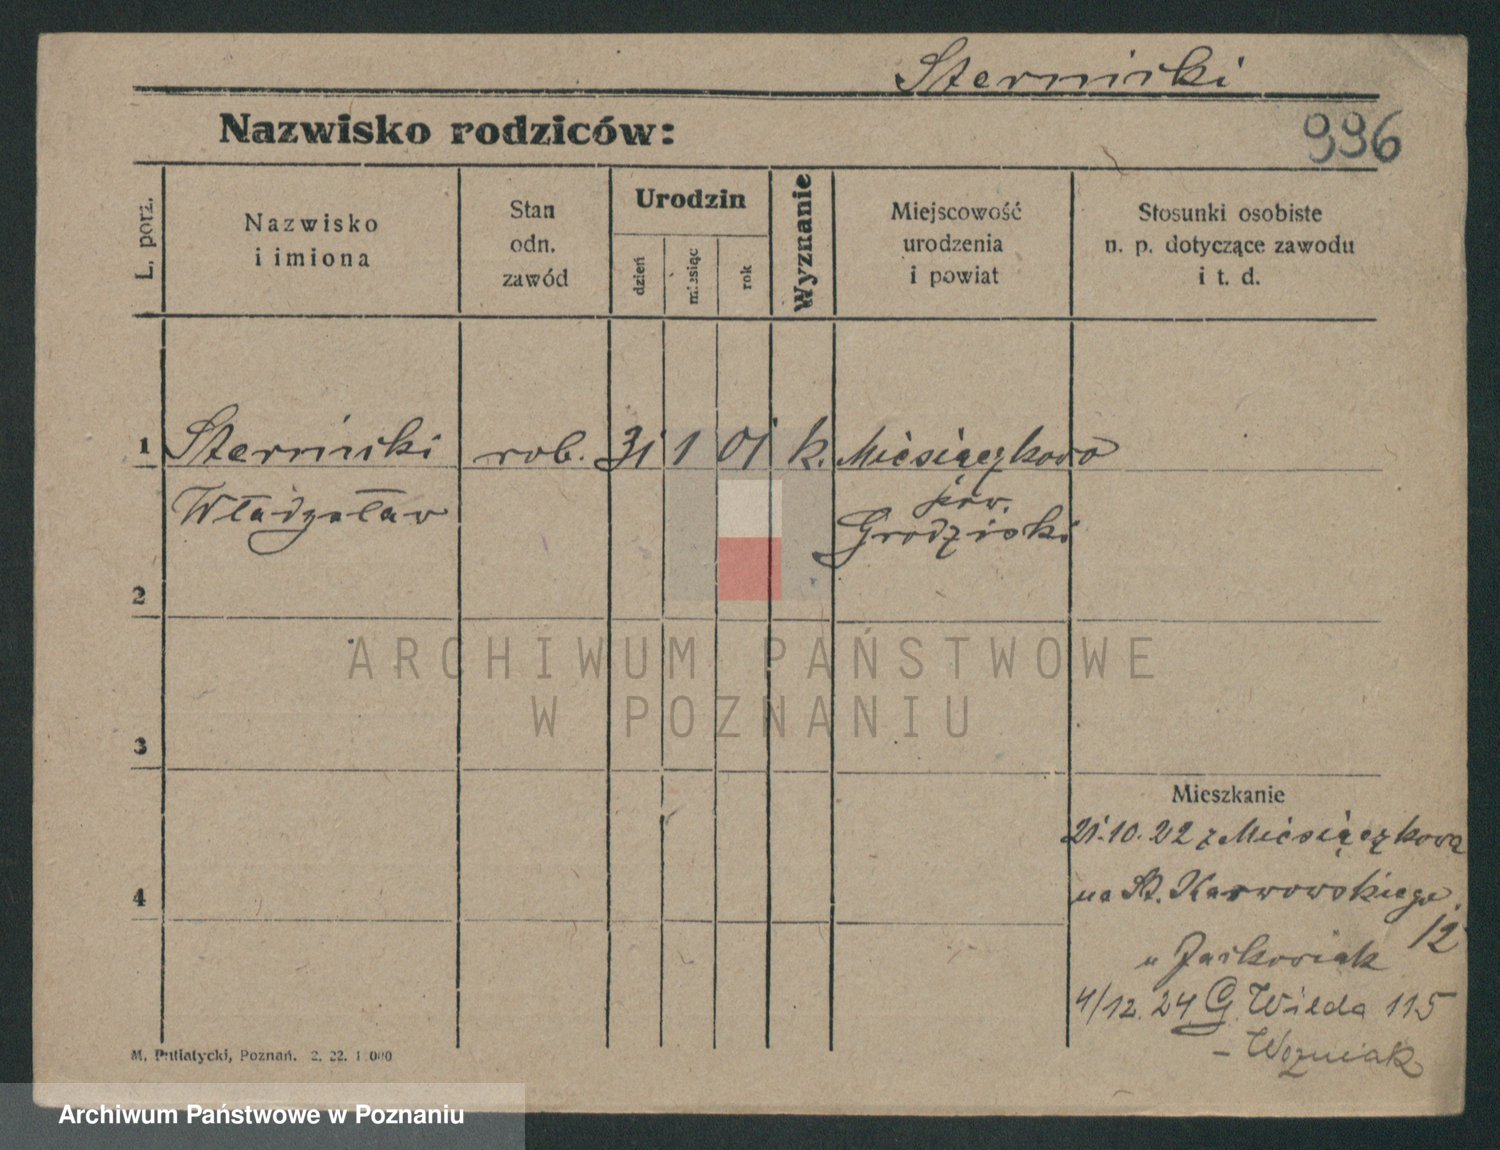 Sterniski
Nazwisko rodziców:
996
L. porz.
Nazwisko
i imiona
Stan
odn.
zawód
Urodzin
dzień
miesiąc
rok
Wyznanie
Miejscowość
urodzenia
i powiat
Stosunki osobiste
n. p. dotyczące zawodu
i t. d.
1 Sterniski rob. 31 1 01 k. Miesiączkowo
Władysław pow.
Grodziski
2
3
4
ARCHIWUM PAŃSTWOWE
W POZNANIU
Mieszkanie
21.10.22 z Miesiączkowa
na St. Karwowskiego
12
u Jaskowiak
4/12. 24 G. Wilda 115
- Wozniak
M. Putiatycki, Poznań. 2. 22. 1 000
Archiwum Państwowe w Poznaniu